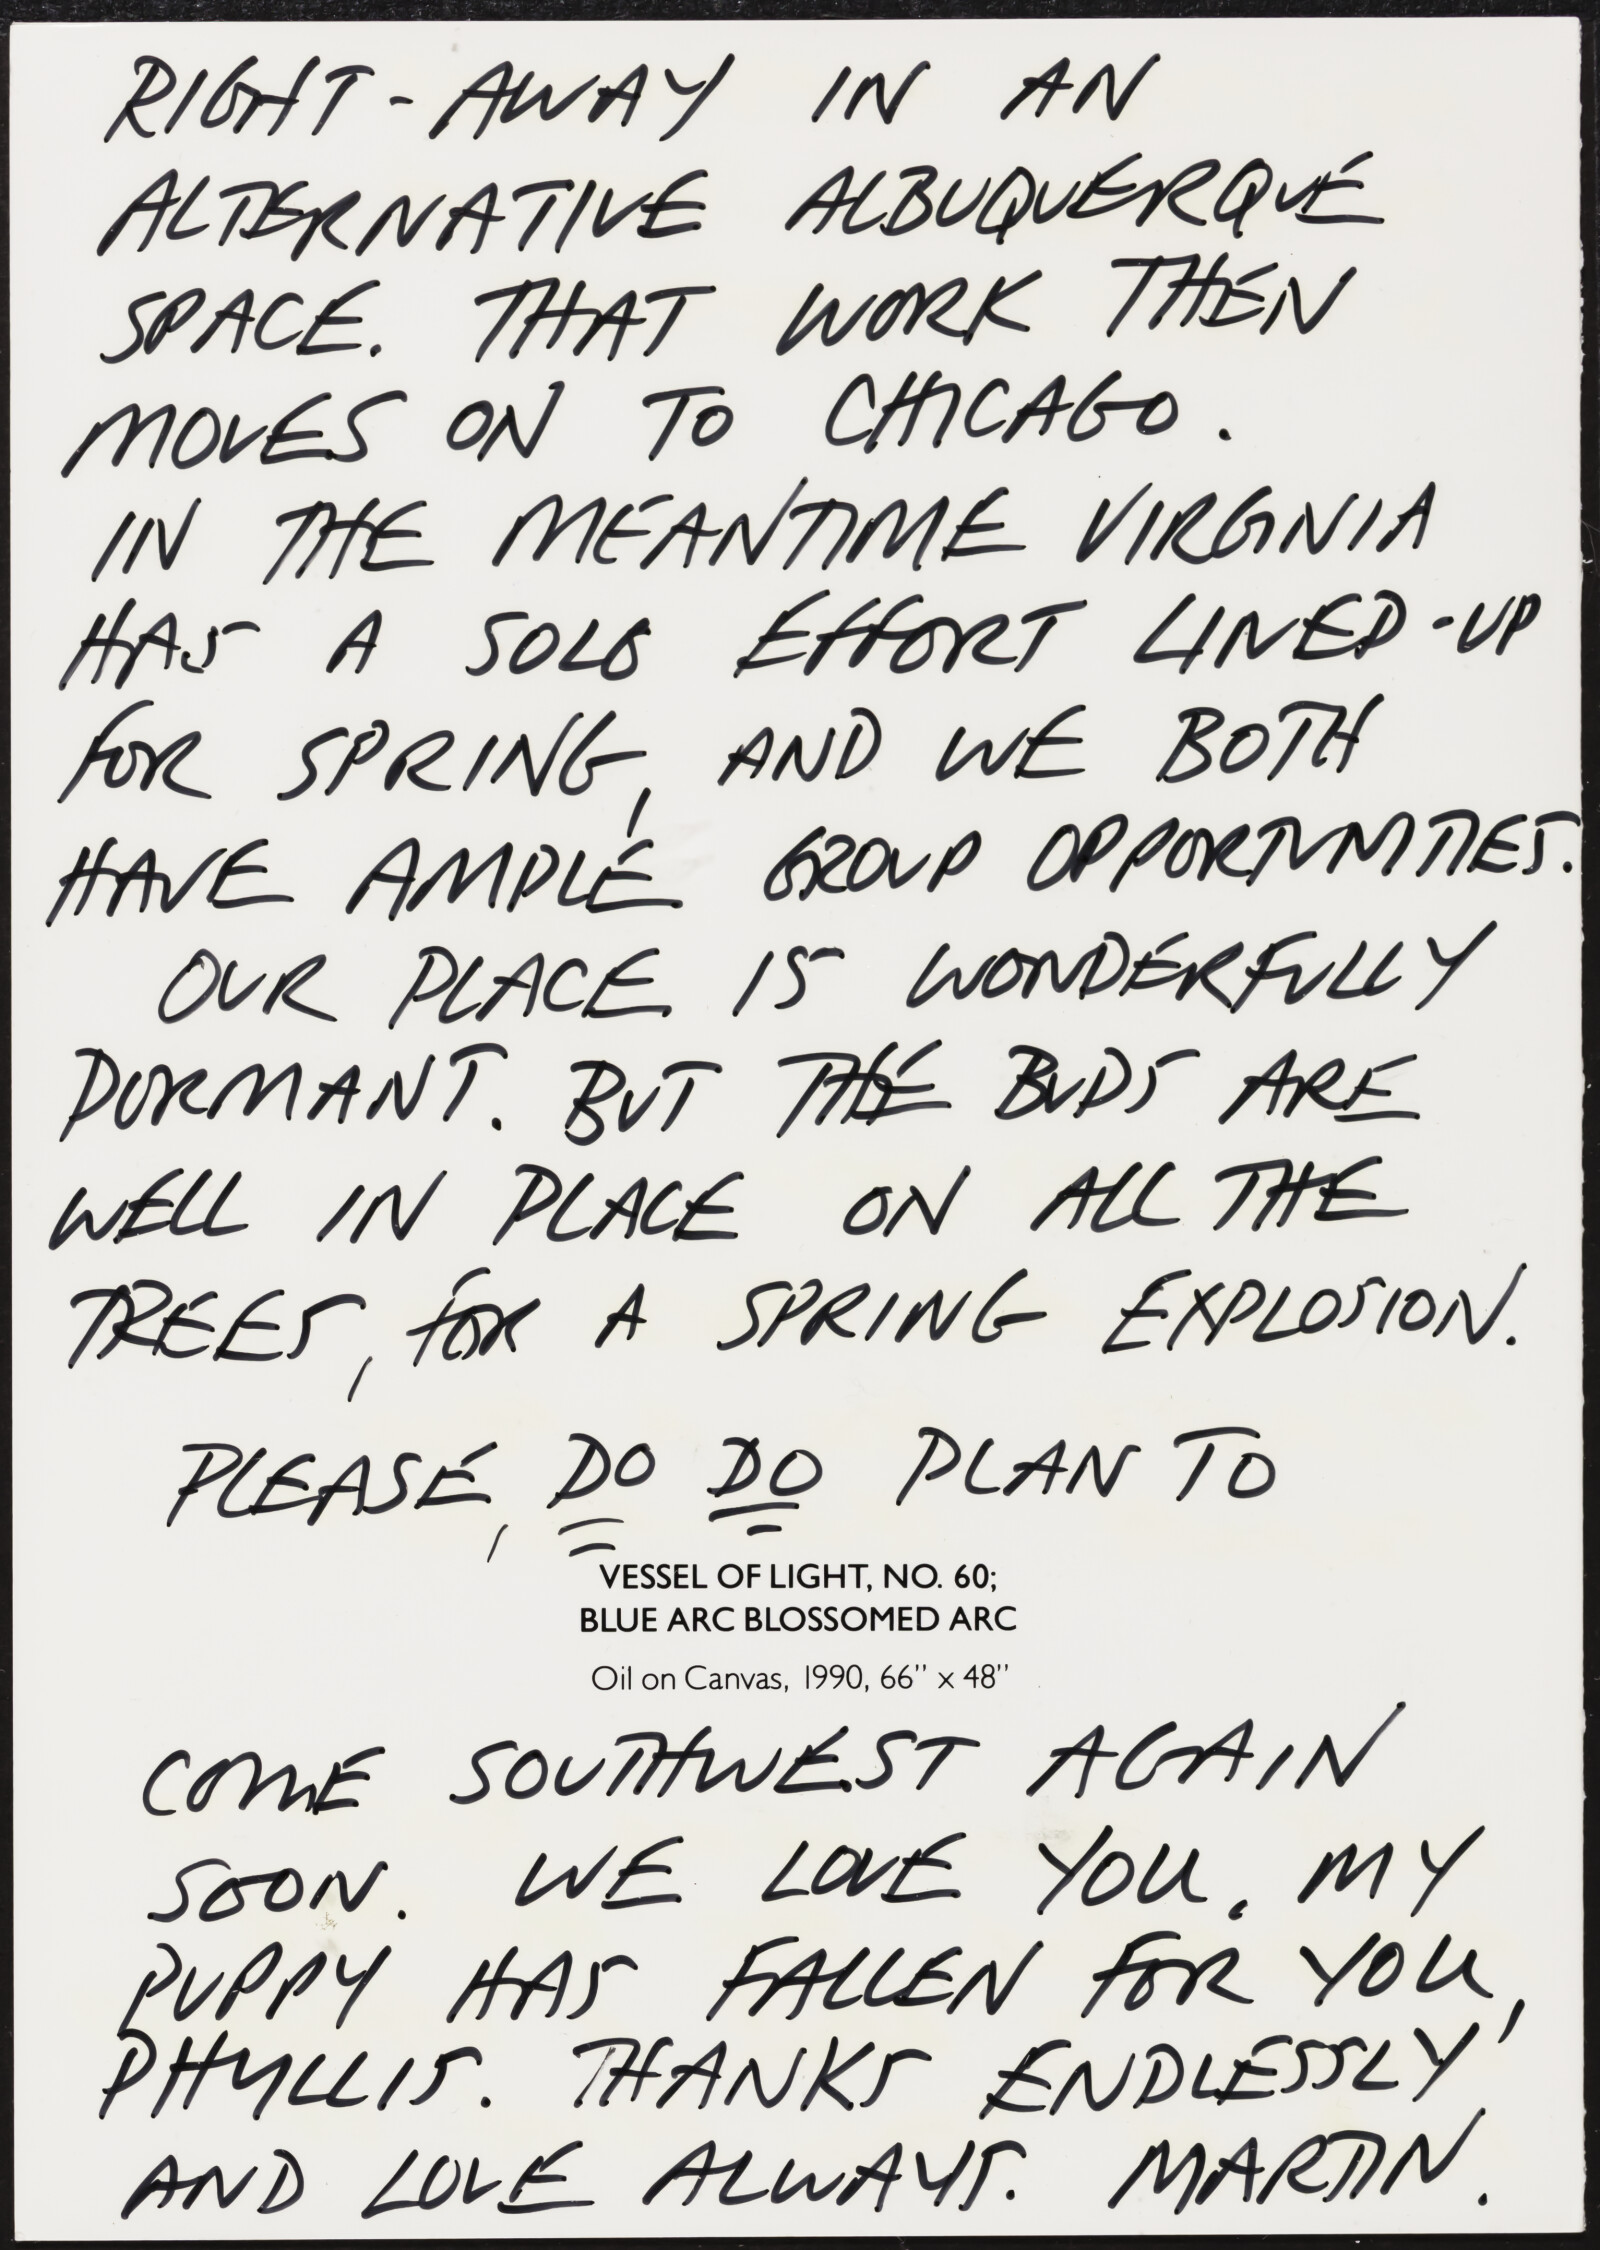 RIGHT-AWAY IN AN
ALTERNATIVE ALBUQUERQUE
SPACE. THAT WORK THEN
MOVES ON TO CHICAGO.
IN THE MEANTIME VIRGINIA
HAS A SOLO EFFORT LINED-UP
FOR SPRING, AND WE BOTH
HAVE AMPLE GROUP OPPORTUNITIES.
OUR PLACE IS WONDERFULLY
DORMANT. BUT THE BUDS ARE
WELL IN PLACE ON ALL THE
TREES, FOR A SPRING EXPLOSION.
PLEASE, DO DO PLAN TO
VESSEL OF LIGHT, NO. 60;
BLUE ARC BLOSSOMED ARC
Oil on Canvas, 1990, 66" x 48"
COME SOUTHWEST AGAIN
SOON. WE LOVE YOU. MY
PUPPY HAS FALLEN FOR YOU,
PHYLLIS. THANKS ENDLESSLY,
AND LOVE ALWAYS. MARTIN.